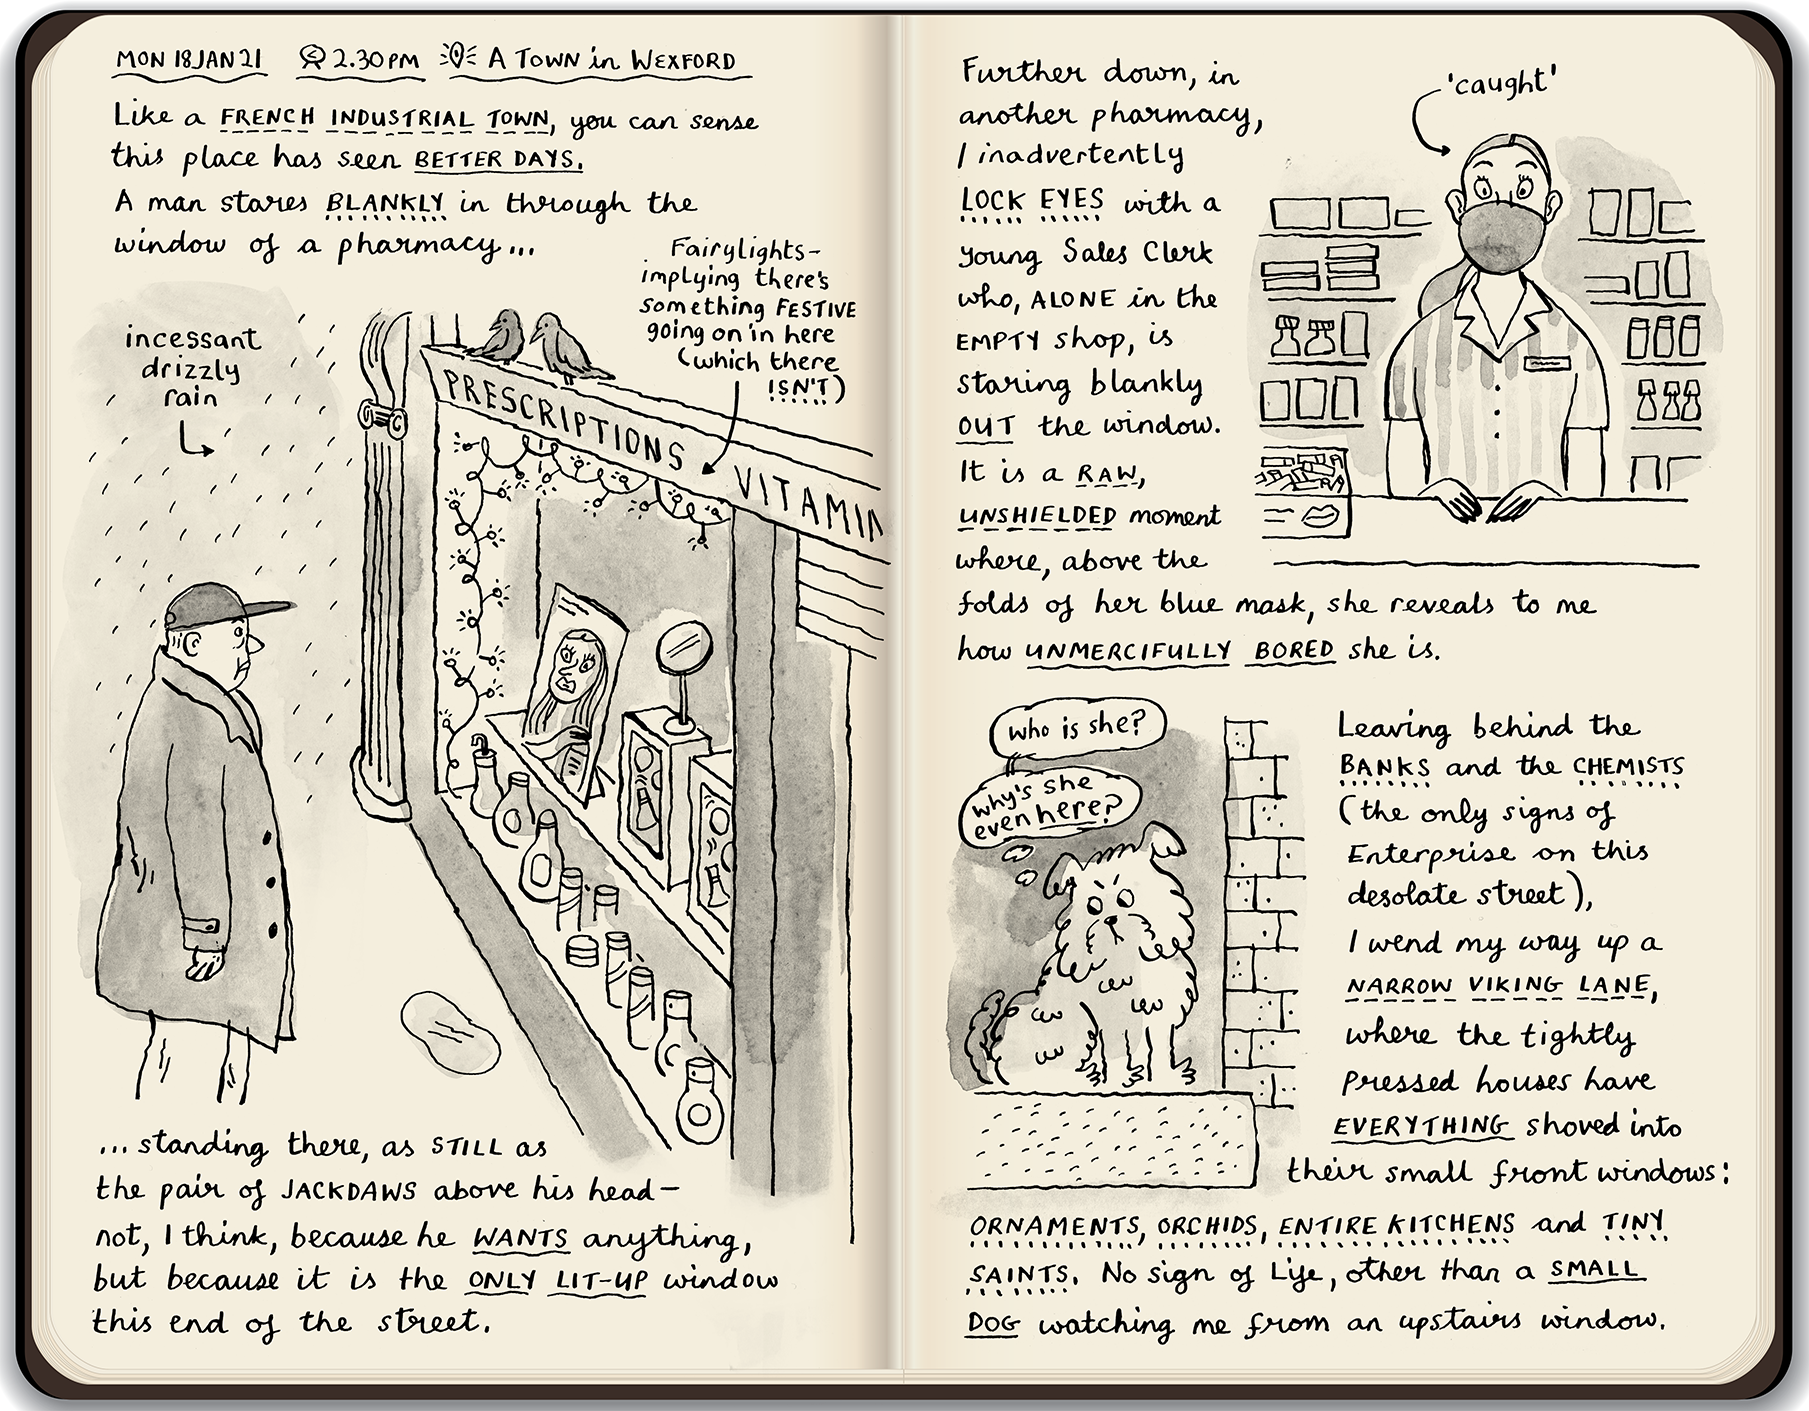 MON 18 JAN 21 2.30PM A TOWN in WEXFORD
Like a FRENCH INDUSTRIAL TOWN, you can sense
this place has seen BETTER DAYS.
A man stares BLANKLY in through the
window of a pharmacy...
Fairylights-
implying there's
something FESTIVE
going on in here
(which there
ISN'T)
incessant
drizzly
rain
PRESCRIPTIONS VITAMIN
...standing there, as STILL as
the pair of JACKDAWS above his head—
not, I think, because he WANTS anything,
but because it is the ONLY LIT-UP window
this end of the street.
Further down, in
another pharmacy,
I inadvertently
LOCK EYES with a
young Sales Clerk
who, ALONE in the
EMPTY shop, is
staring blankly
OUT the window.
It is a RAW,
UNSHIELDED moment
where, above the
folds of her blue mask, she reveals to me
how UNMERCIFULLY BORED she is.
'caught'
who is she?
why's she
even here?
Leaving behind the
BANKS and the CHEMISTS
(the only signs of
Enterprise on this
desolate street),
I wend my way up a
NARROW VIKING LANE,
where the tightly
pressed houses have
EVERYTHING shoved into
their small front windows:
ORNAMENTS, ORCHIDS, ENTIRE KITCHENS and TINY
SAINTS. No sign of Life, other than a SMALL
DOG watching me from an upstairs window.